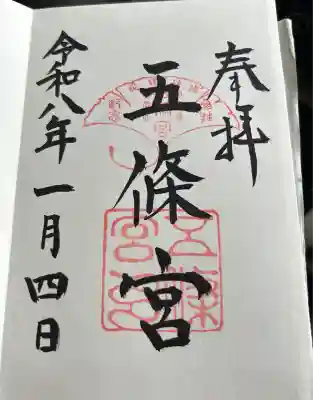 奉拝
五條宮
令和八年一月四日
五條
宮印